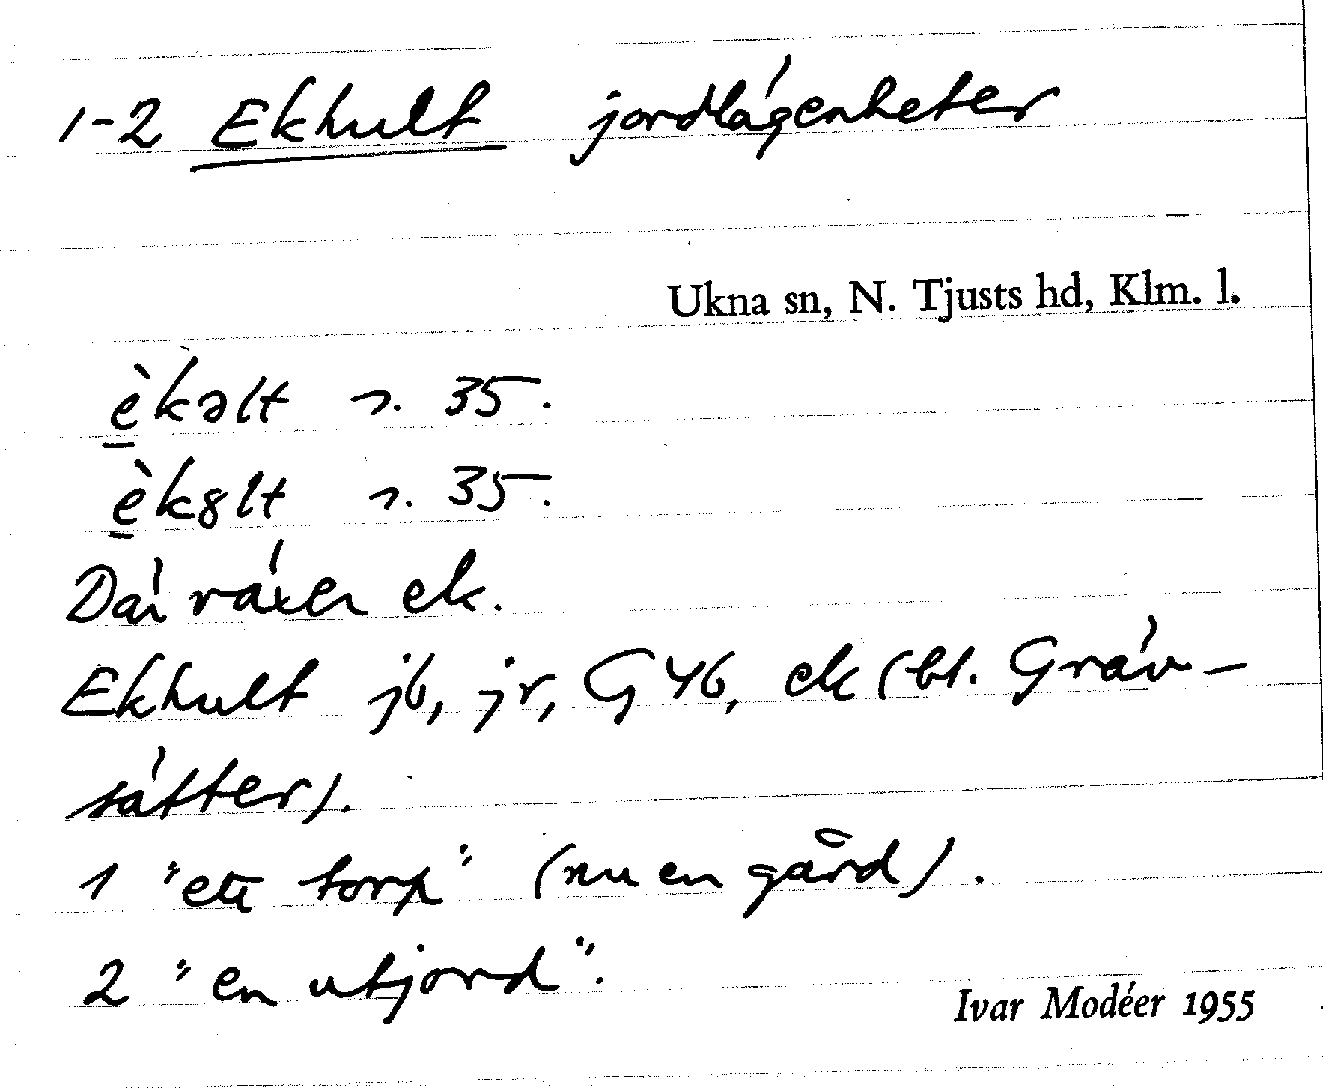 1-2 Ekhult jordlägenheter
Ukna sn, N. Tjusts hd, Klm. l.
èkəlt s. 35.
èk8lt s. 35.
Där växer ek.
Ekhult jb, jr, G 46, ek (bl. Gräv-
sätter).
1 "ett torp" (nu en gård).
2 "en utjord".
Ivar Modéer 1955